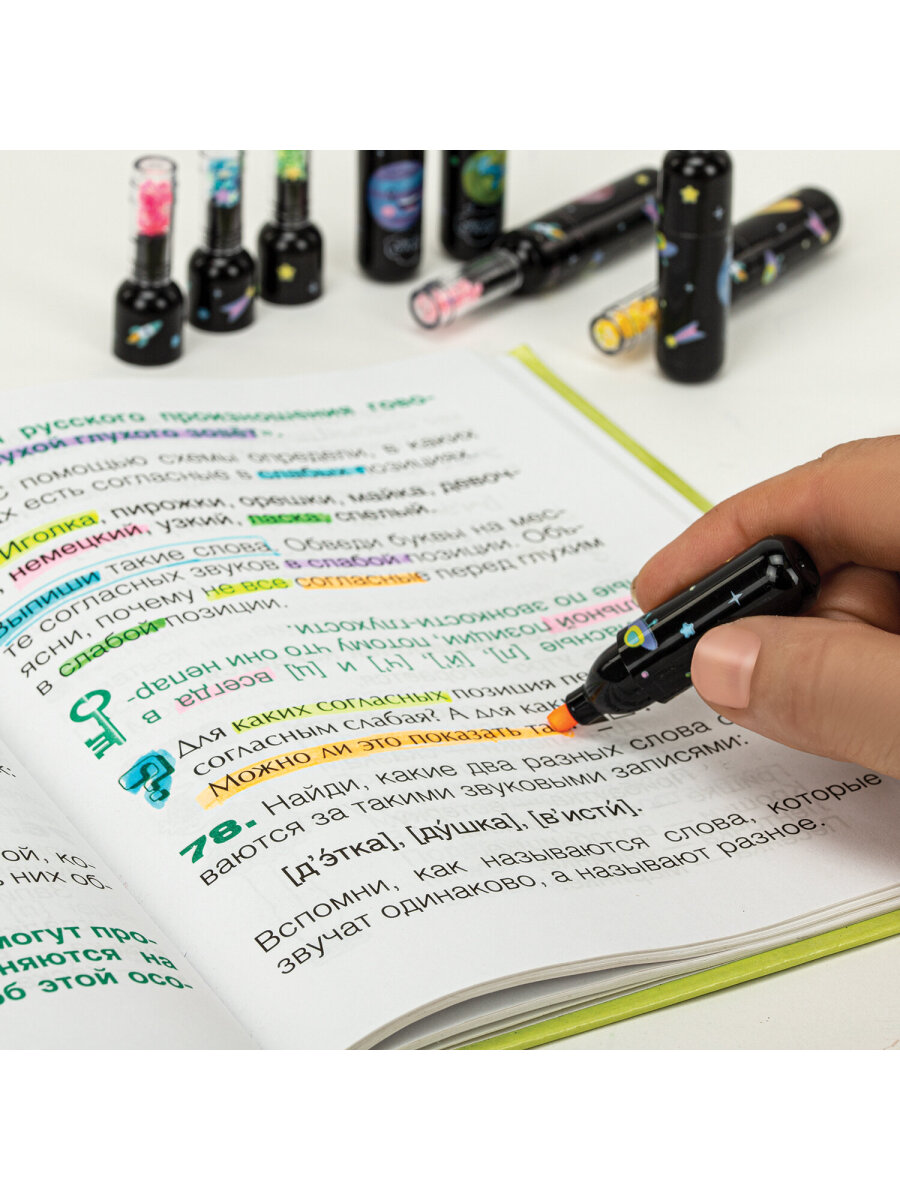 русского произношения гово-
глухого зовёт».
с помощью схемы определи, в каких
есть согласные в слабых позициях
Иголка, пирожки, орешки, майка, девоч-
немецкий, узкий, ласка, спелый.
Выпиши такие слова. Обведи буквы на мес-
те согласных звуков в слабой позиции. Объ-
ясни, почему не все согласные перед глухим
в слабой позиции.
Для каких согласных позиция
согласным слабая? А для
Можно ли это показать
78. Найди, какие два разных слова
ваются за такими звуковыми записями:
[д’э́тка], [ду́шка], [в’исти́].
Вспомни, как называются слова, которые
звучат одинаково, а называют разное.
ой, ко-
них об-
могут про-
няются на
об этой осо-